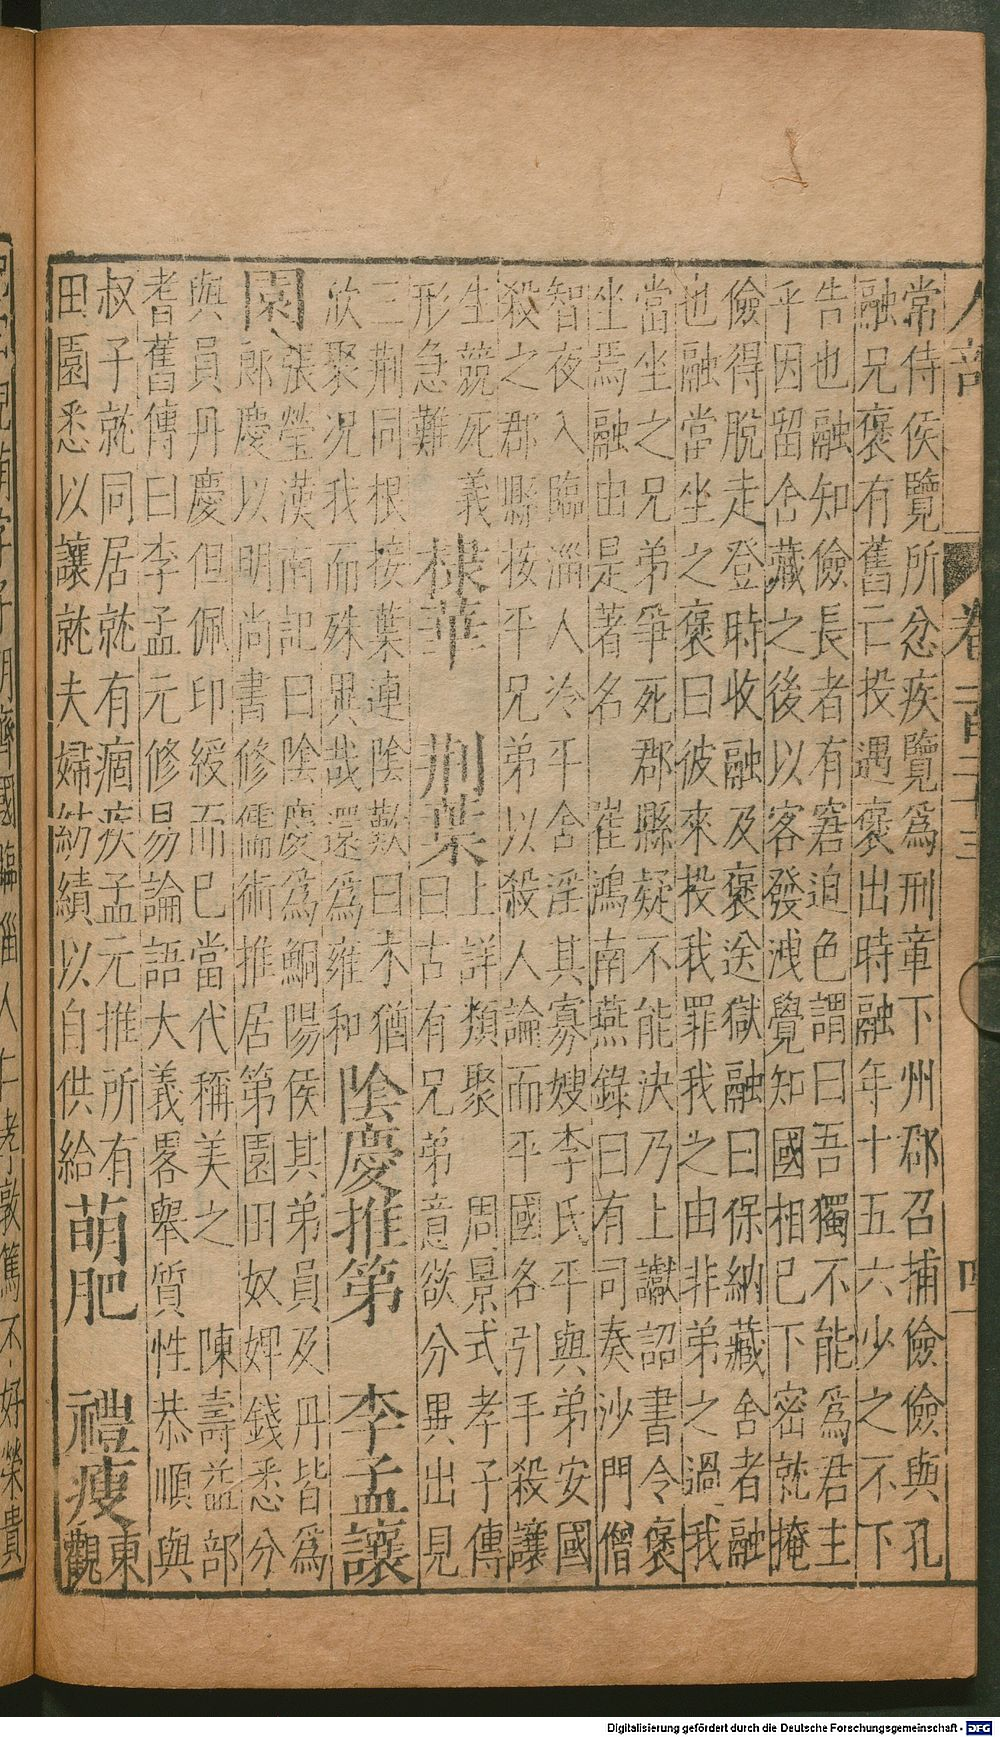 人部 卷
常侍侯覽所忿疾覽為刑章下州郡召捕儉儉與孔
融兄褒有舊亡投遇褒出時融年十五六少之不下
告也融知儉長者有窘迫色謂曰吾獨不能為君主
乎因留舍藏之後以客發洩覺知國相已下密就掩
儉得脫走登時收融及褒送獄融曰保納藏舍者融
也融當坐之褒曰彼來投我罪我之由非弟之過我
當坐之兄弟爭死郡縣疑不能決乃上讞詔書令褒
坐焉融由是著名 崔鴻南燕錄曰有司奏沙門僧
智夜入臨淄人冷平舍淫其寡嫂李氏平與弟安國
殺之郡縣按平兄弟以殺人論而平國各引手殺讓
生競死義
形急難
棣華 荊葉
上詳類聚 周景式孝子傳
曰古有兄弟意欲分異出見
三荊同根接葉連陰歎曰木猶
欣聚況我而殊異哉還為雍和
陰慶推第 李孟讓
園
張瑩漢南記曰陰慶為鮦陽侯其弟員及丹皆為
郎慶以明尚書修儒術推居第園田奴婢錢悉分
與員丹慶但佩印綬而已當代稱美之 陳壽益部
耆舊傳曰李孟元修易論語大義畧舉質性恭順與
叔子就同居就有痼疾孟元推所有
田園悉以讓就夫婦紡績以自供給
萌肥 禮瘦
東
觀
萌字子明齊國臨淄人仁孝敦篤不好榮貴
Digitalisierung gefördert durch die Deutsche Forschungsgemeinschaft - DFG